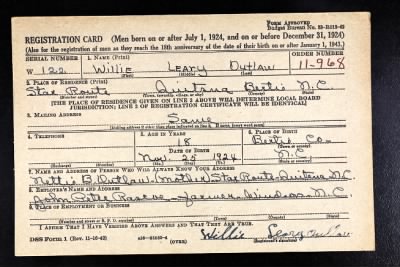 FORM APPROVED
Budget Bureau No. 33-R012-42
REGISTRATION CARD (Men born on or after July 1, 1924, and on or before December 31, 1924)
(Also for the registration of men as they reach the 18th anniversary of the date of their birth on or after January 1, 1943.)
SERIAL NUMBER 1. NAME (Print) ORDER NUMBER
W 122 Willie Leary Outlaw 11-968
(First) (Middle) (Last)
2. PLACE OF RESIDENCE (Print)
Star Route Quitsna Bertie N.C.
(Number and street) (Town, township, village, or city) (County) (State)
[THE PLACE OF RESIDENCE GIVEN ON LINE 2 ABOVE WILL DETERMINE LOCAL BOARD
JURISDICTION; LINE 2 OF REGISTRATION CERTIFICATE WILL BE IDENTICAL]
3. MAILING ADDRESS
Same
4. TELEPHONE 5. AGE IN YEARS 6. PLACE OF BIRTH
18 Bertie Co.
DATE OF BIRTH
Nov 25 1924 N.C.
(Exchange) (Number) (Mo.) (Day) (Yr.) (State or country)
7. NAME AND ADDRESS OF PERSON WHO WILL ALWAYS KNOW YOUR ADDRESS
B Outlaw (Mother) Star Route Quitsna NC
8. EMPLOYER'S NAME AND ADDRESS
John Farmer Windsor N.C.
9. PLACE OF EMPLOYMENT OR BUSINESS
(Number and street or R. F. D. number) (Town) (County) (State)
I AFFIRM THAT I HAVE VERIFIED ABOVE ANSWERS AND THAT THEY ARE TRUE.
DSS Form 1 (Rev. 11-16-42) (OVER) Willie Leary Outlaw
(Registrant's signature)